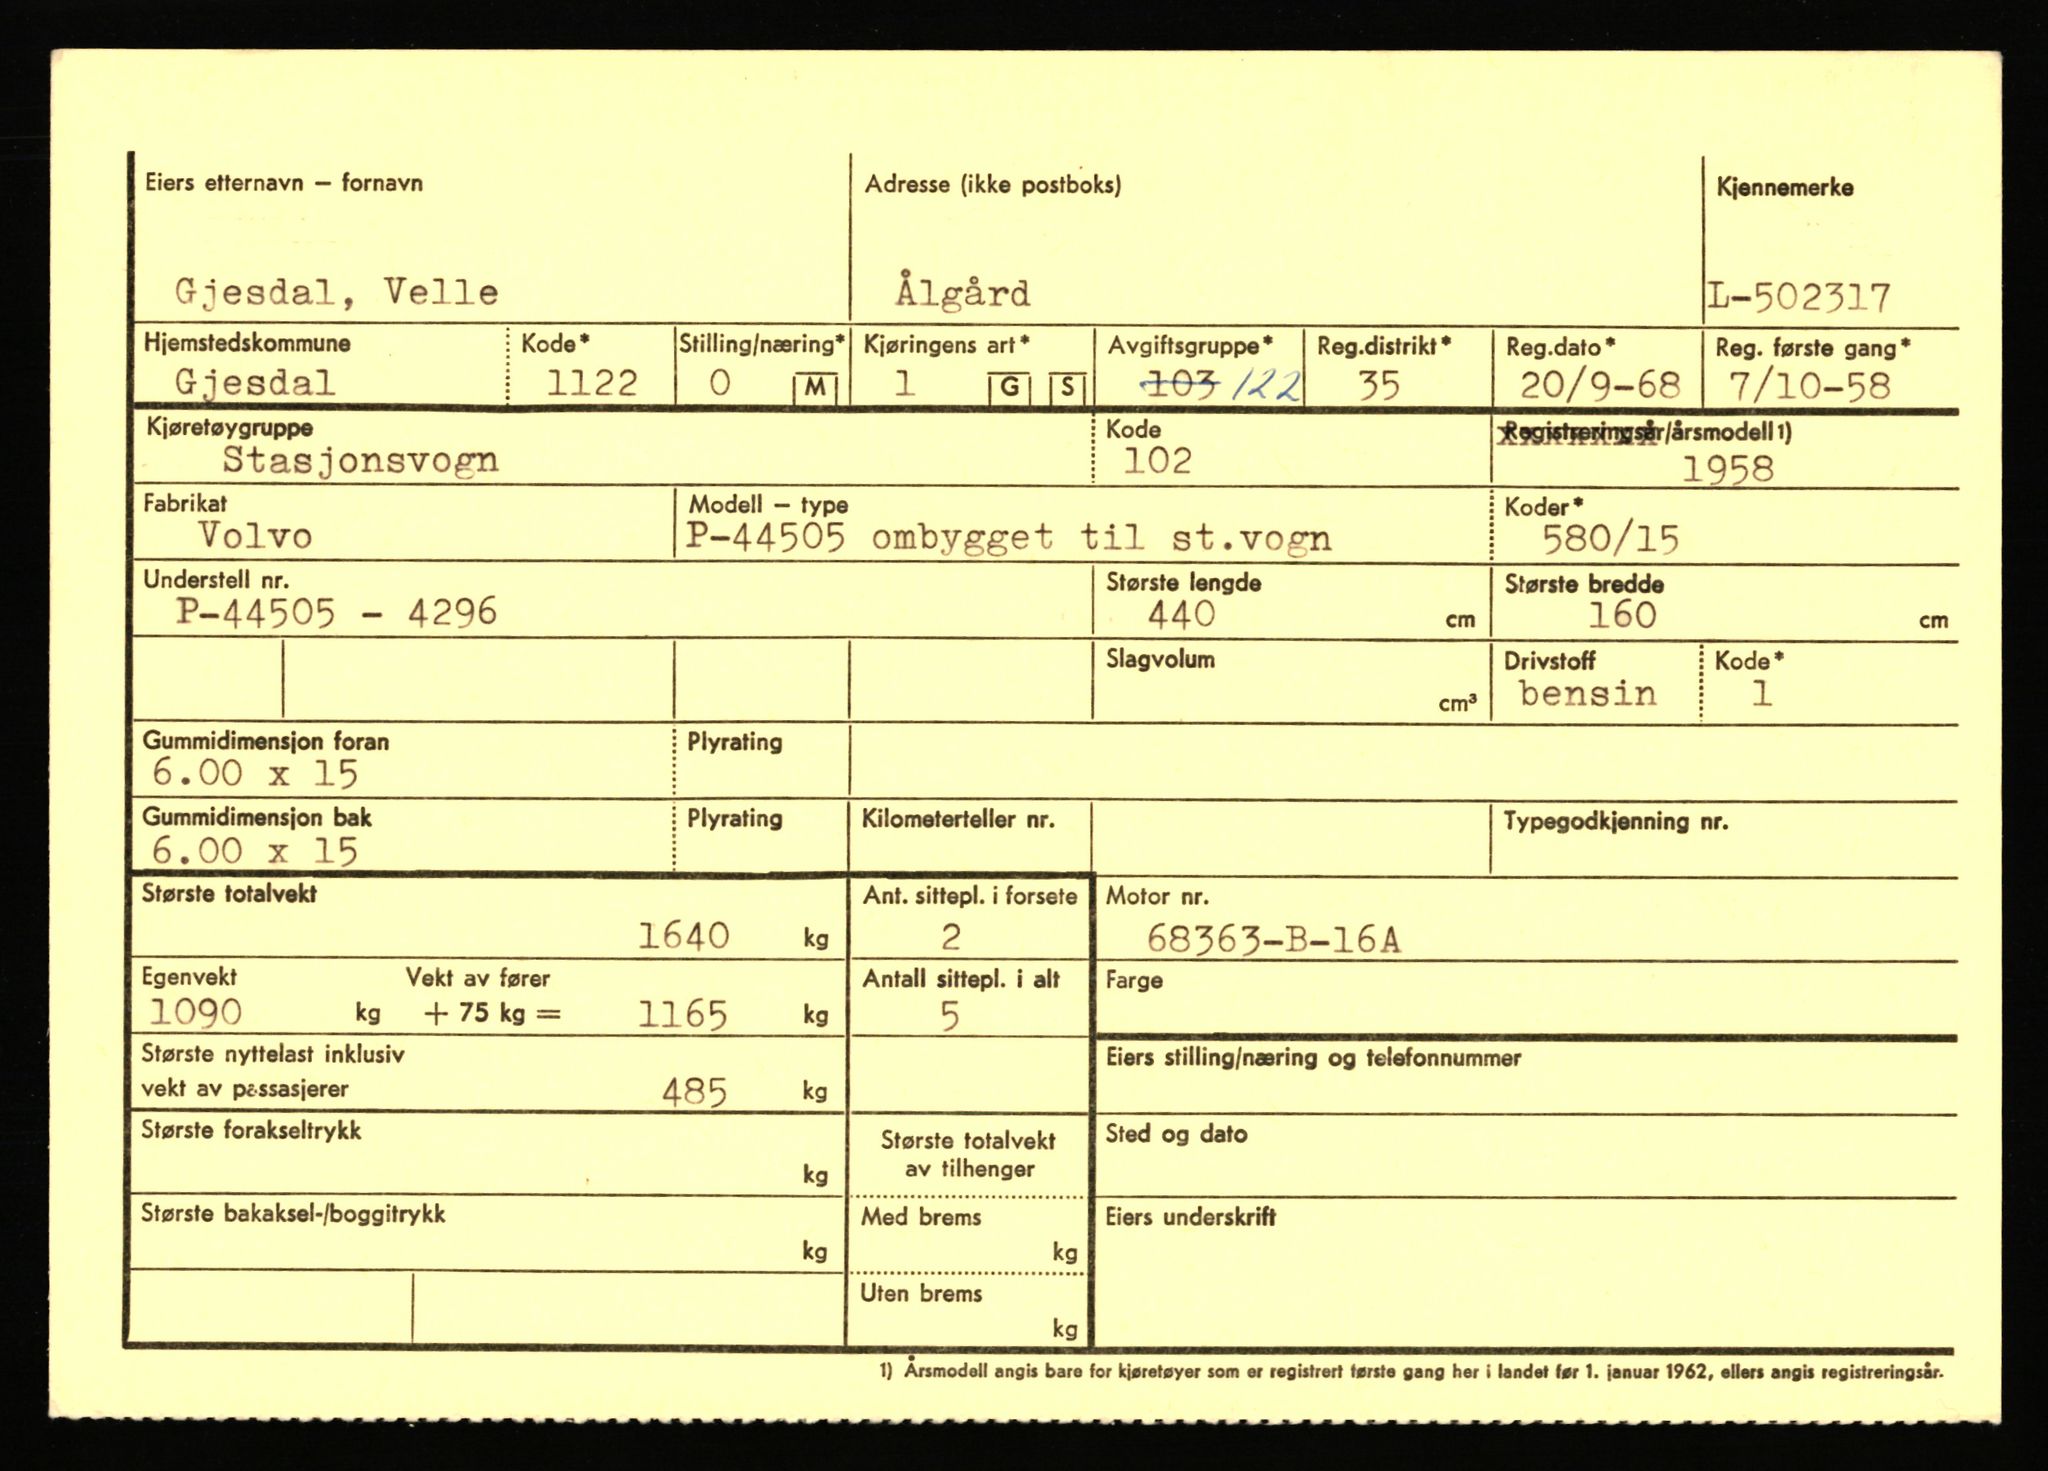 Eiers etternavn – fornavn Adresse (ikke postboks) Kjennemerke
Gjesdal, Velle Ålgård L-502317
Hjemstedskommune Kode* Stilling/næring* Kjøringens art* Avgiftsgruppe* Reg.distrikt* Reg.dato* Reg. første gang*
Gjesdal 1122 0 M 1 G S 103 122 35 20/9-68 7/10-58
Kjøretøygruppe Kode Registreringsår/årsmodell 1)
Stasjonsvogn 102 1958
Fabrikat Modell – type Koder*
Volvo P-44505 ombygget til st.vogn 580/15
Understell nr. Største lengde Største bredde
P-44505 - 4296 440 cm 160 cm
Slagvolum Drivstoff Kode*
cm³ bensin 1
Gummidimensjon foran Plyrating
6.00 x 15
Gummidimensjon bak Plyrating Kilometerteller nr. Typegodkjenning nr.
6.00 x 15
Største totalvekt Ant. sittepl. i forsete Motor nr.
1640 kg 2 68363-B-16A
Egenvekt Vekt av fører Antall sittepl. i alt Farge
1090 kg + 75 kg = 1165 kg 5
Største nyttelast inklusiv Eiers stilling/næring og telefonnummer
vekt av passasjerer 485 kg
Største forakseltrykk Største totalvekt Sted og dato
kg av tilhenger
Største bakaksel-/boggitrykk Med brems Eiers underskrift
kg kg
Uten brems
kg
1) Årsmodell angis bare for kjøretøyer som er registrert første gang her i landet før 1. januar 1962, ellers angis registreringsår.